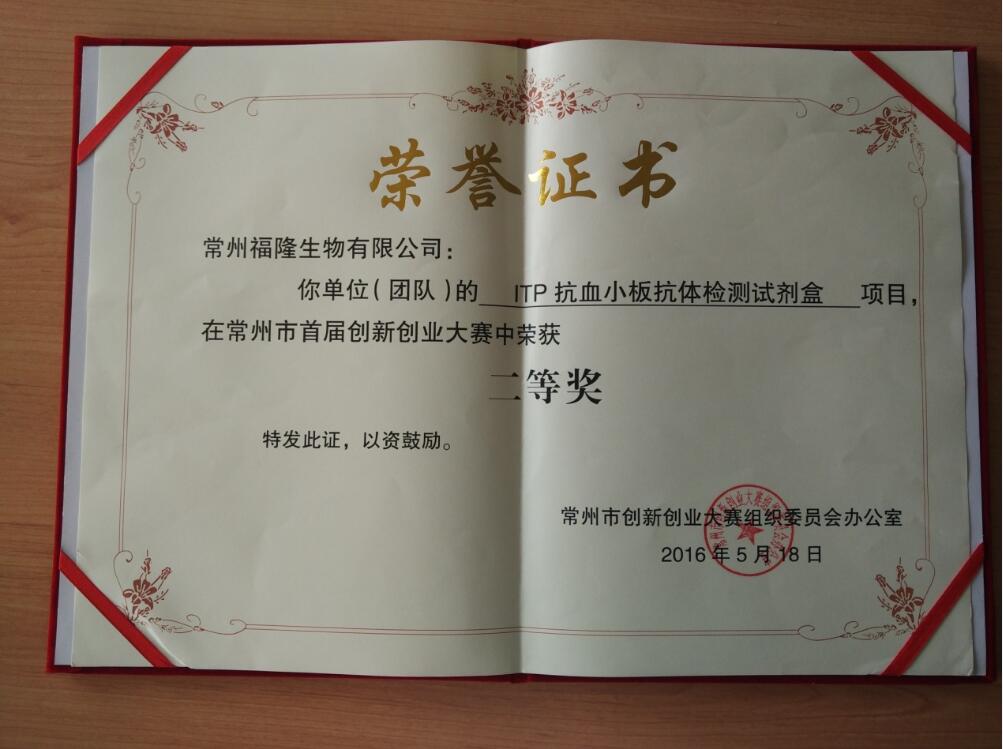 荣誉证书
常州福隆生物有限公司：
你单位（团队）的 ITP抗血小板抗体检测试剂盒 项目，
在常州市首届创新创业大赛中荣获
二等奖
特发此证，以资鼓励。
常州市创新创业大赛组织委员会办公室
2016年5月18日